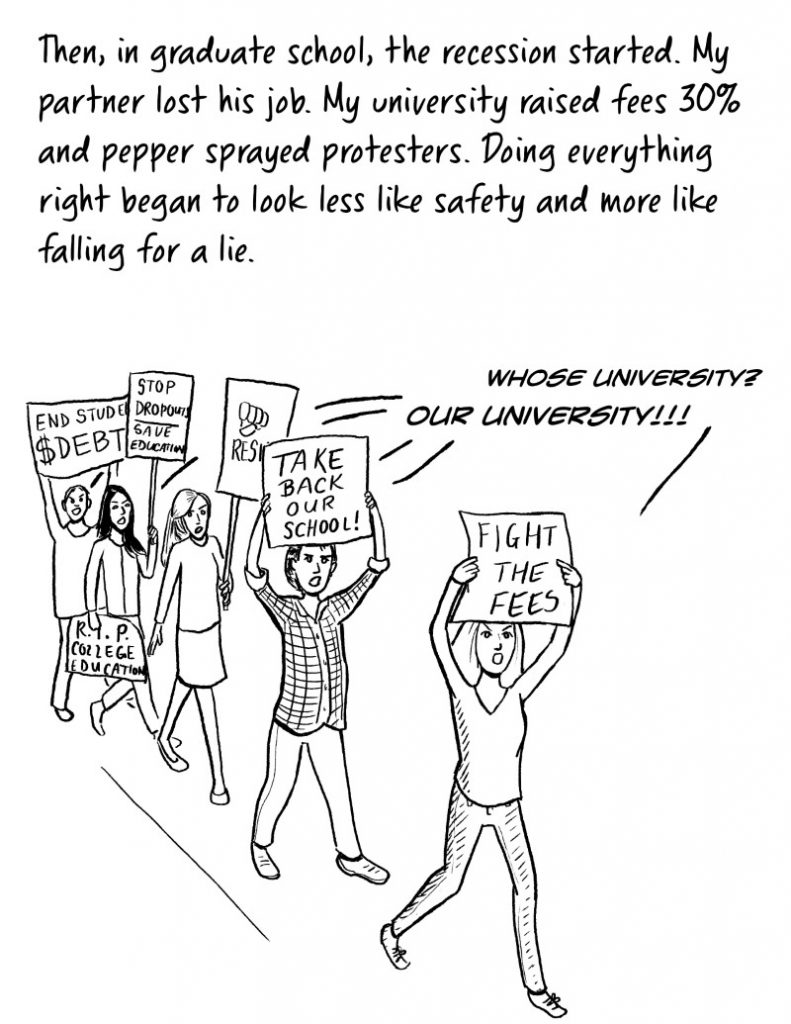 Then, in graduate school, the recession started. My
partner lost his job. My university raised fees 30%
and pepper sprayed protesters. Doing everything
right began to look less like safety and more like
falling for a lie.
WHOSE UNIVERSITY?
OUR UNIVERSITY!!!
END STUDE
$DEBT
STOP
DROPOUTS
SAVE
EDUCATION
RESI
TAKE
BACK
OUR
SCHOOL!
FIGHT
THE
FEES
R.I.P.
COLLEGE
EDUCATION